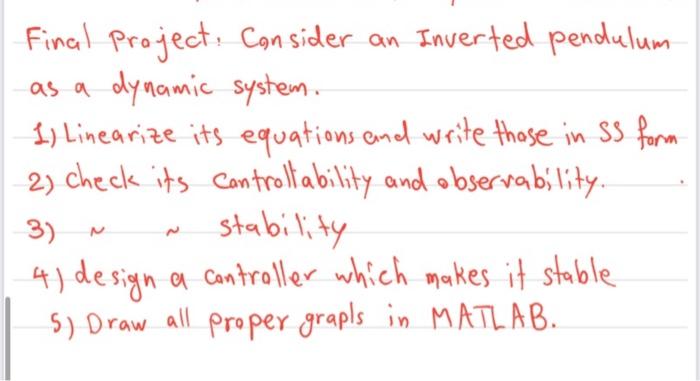 Final Project: Consider an Inverted pendulum
as a dynamic system.
1) Linearize its equations and write those in SS form
2) check its Controllability and observability.
3) ~ ~ stability
4) design a controller which makes it stable
5) Draw all proper grapls in MATLAB.